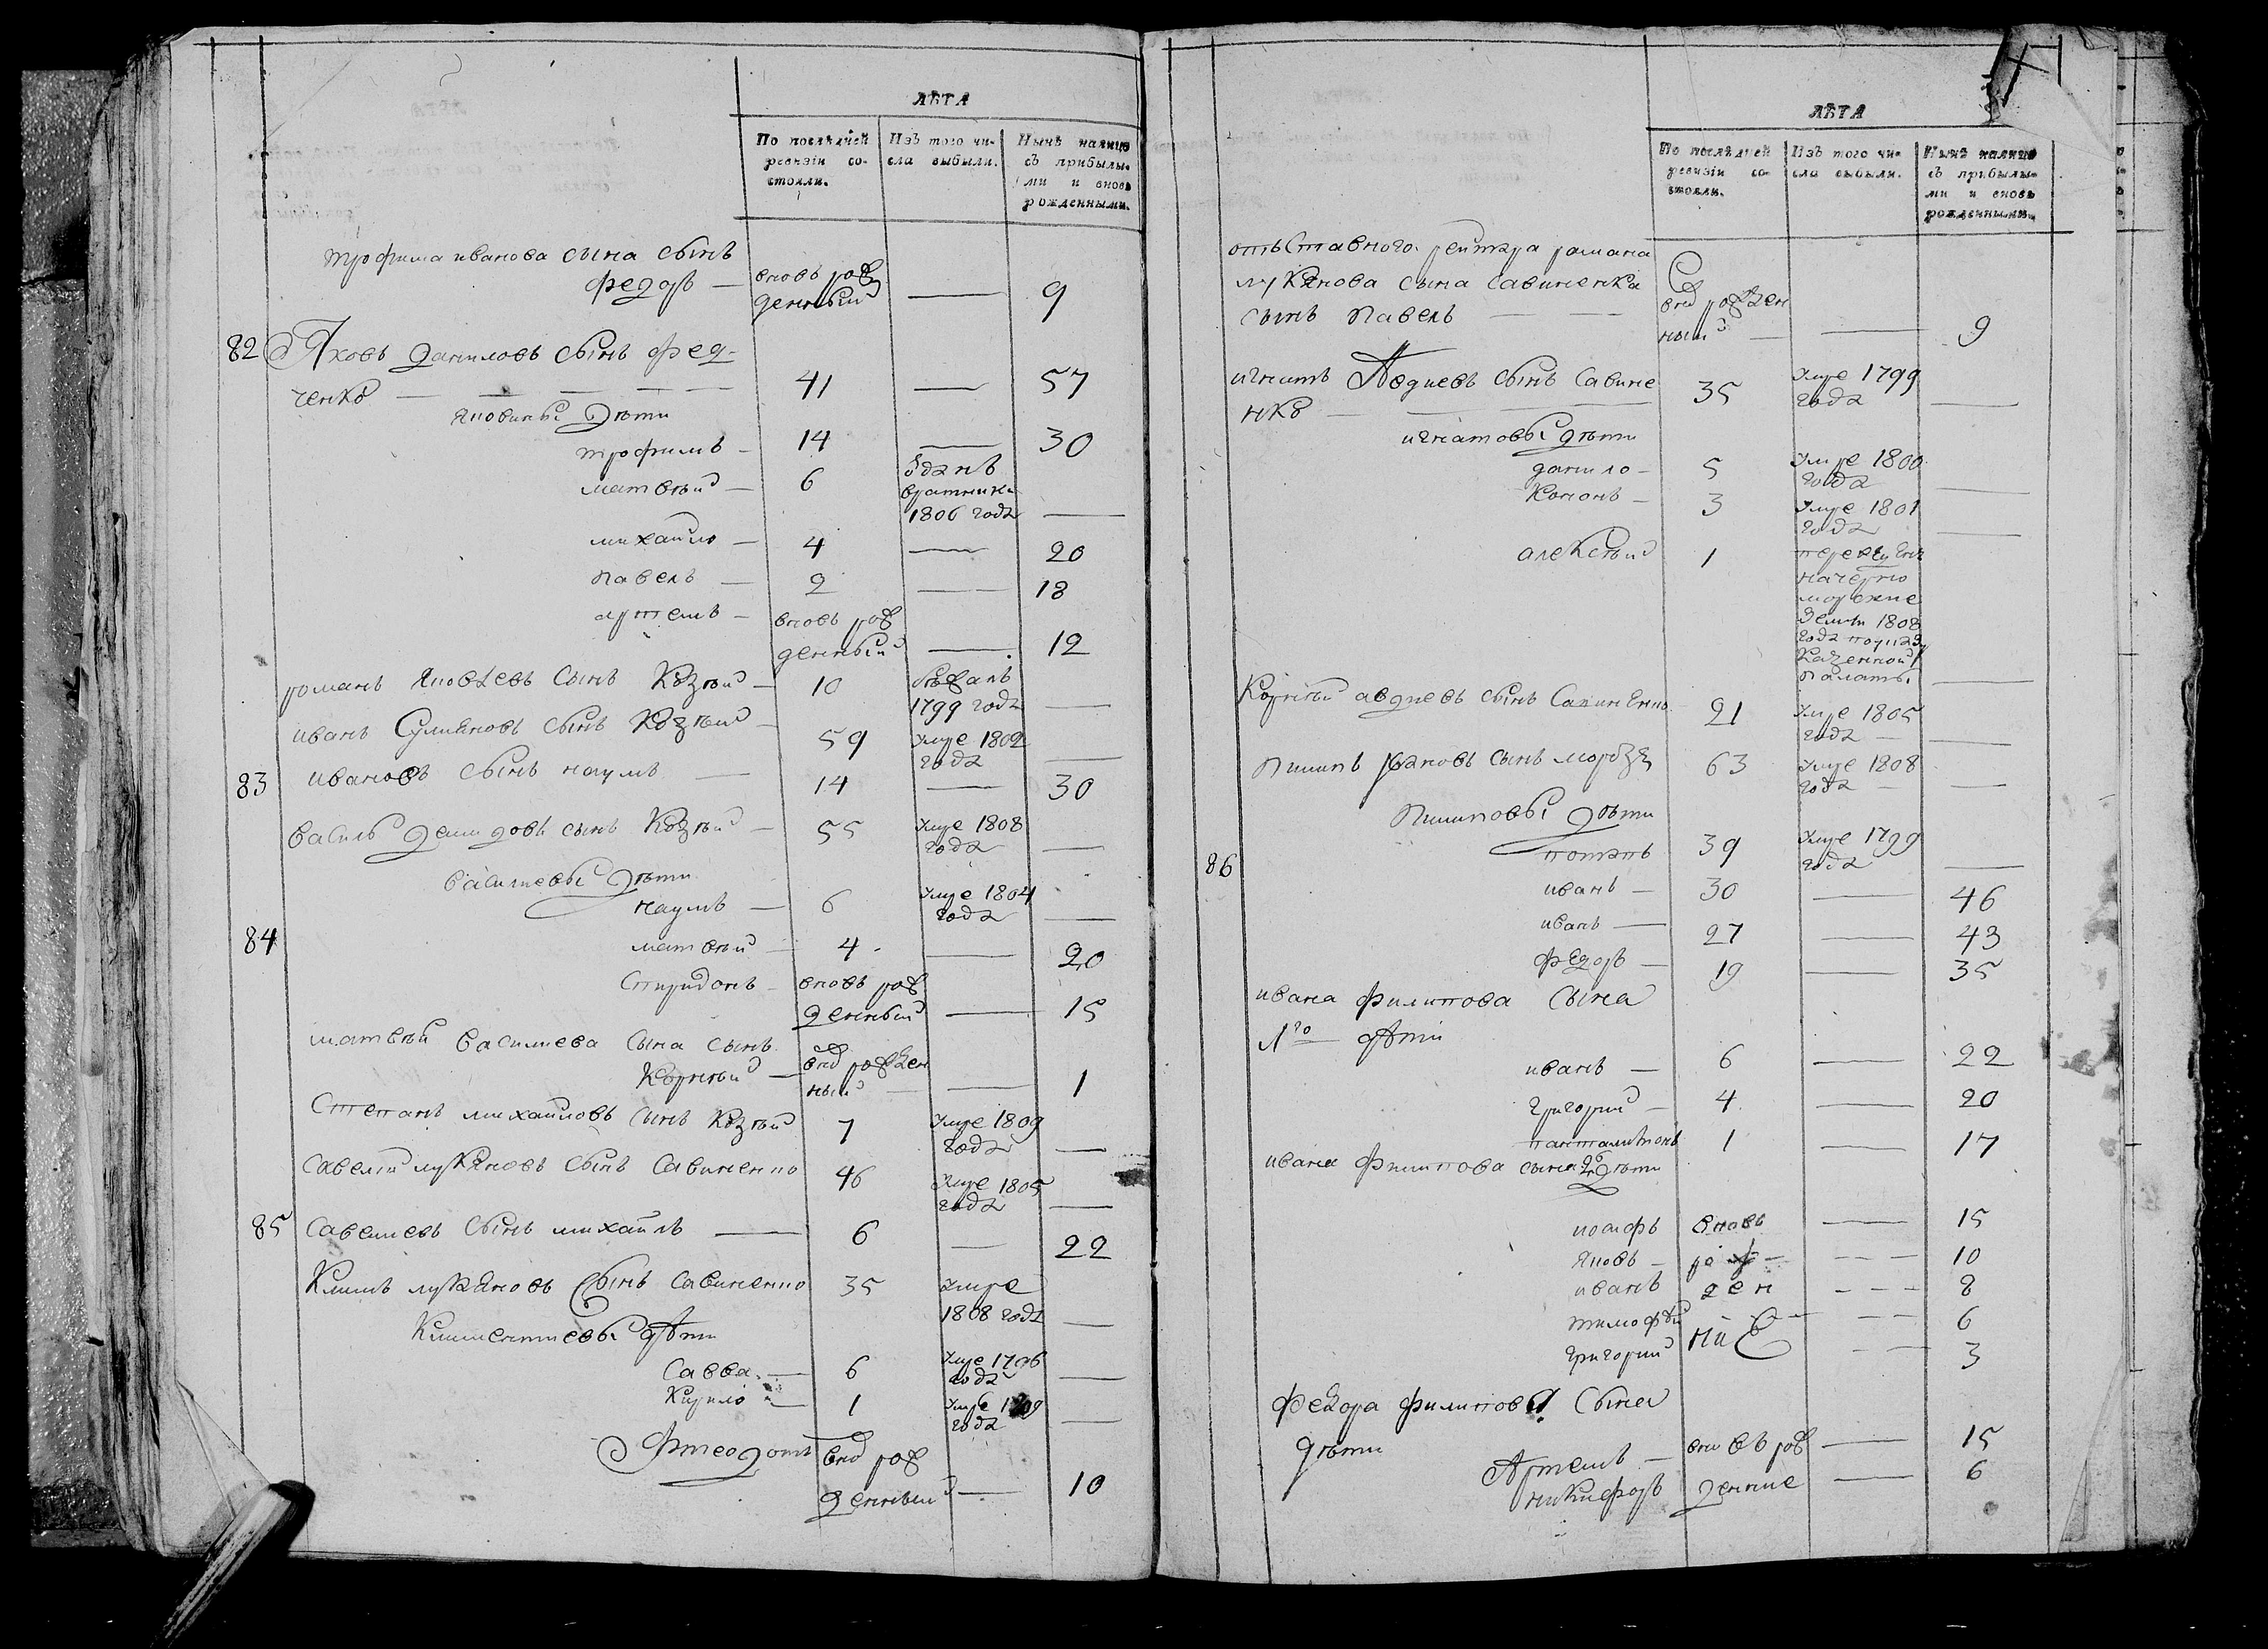 ЛѢТА
По послѣдней ревизіи состояли.
Изъ того числа выбыли.
Нынѣ налицо съ прибылыми и вновь рожденными.
трофима иванова сына сынъ
федоръ — вновь рож
денный — 9
82 Яковъ даниловъ сынъ фед-
ченко — 41 — 57
яковлевы дѣти
трофимъ — 14 — 30
матвѣй — 6 зданъ
вратники
1806 года —
михайло — 4 — 20
павелъ — 2 — 18
артемъ — вновь рож
денный — 12
романъ яковлевъ сынъ Козѣй — 10 бѣжалъ
1799 года —
иванъ Сулимовъ сынъ Козѣй — 59 умре 1802
года —
83 ивановъ сынъ наумъ — 14 — 30
василь демидовъ сынъ Козѣй — 55 умре 1808
года —
василиевы дѣти
наумъ — 6 умре 1804
года —
84 матвѣй — 4 — 20
спиридонъ — вновь рож
денный — 15
матвѣй василиева сына сынъ
Корнѣй — вно рожден
ный — 1
Степанъ михайловъ сынъ Козѣй 7 умре 1809
года —
савелий лукяновъ сынъ савиненко 46 умре 1805
года —
85 савелиевъ сынъ михайлъ — 6 — 22
Климъ лукяновъ сынъ савиненко 35 умре
1808 года —
Климентиевы дѣти
Савва — 6 умре 1796
года —
Кирило — 1 умре
года —
Фтеодотъ вно рож
денный — 10
ЛѢТА
По послѣдней ревизіи состояли.
Изъ того числа выбыли.
Нынѣ налицо съ прибылыми и вновь рожденными.
отъставного рейтара романа
лукянова сына савиненка
сынъ павелъ — вно рожден
ный — 9
игнатъ Авдиевъ сынъ савине
нко — 35 умре 1799
года —
игнатовы дѣти
данило — 5 умре 1800
года —
Кононъ — 3 умре 1801
года —
алексѣй 1
начерно
морские
земли 1808
года
Казенной
палаты —
Корнѣй авдиевъ сынъ Савиненко 21 умре 1805
года —
пилипъ сынъ 63 умре 1808
года —
Пилиповы дѣти
86 потапъ 39 умре 1799
года —
иванъ — 30 — 46
иванъ — 27 — 43
федоръ — 19 — 35
ивана филипова сына
1го дѣти
иванъ — 6 — 22
григорий — 4 — 20
панталимонъ 1 — 17
ивана филипова сына 2го дѣти
иосифъ вновь — 15
яковъ — ро — 10
иванъ ден — 8
тимофѣй — 6
григорий ные — 3
федора филипова сына
дѣти
Артемъ — вновь рож — 15
никифоръ денние — 6